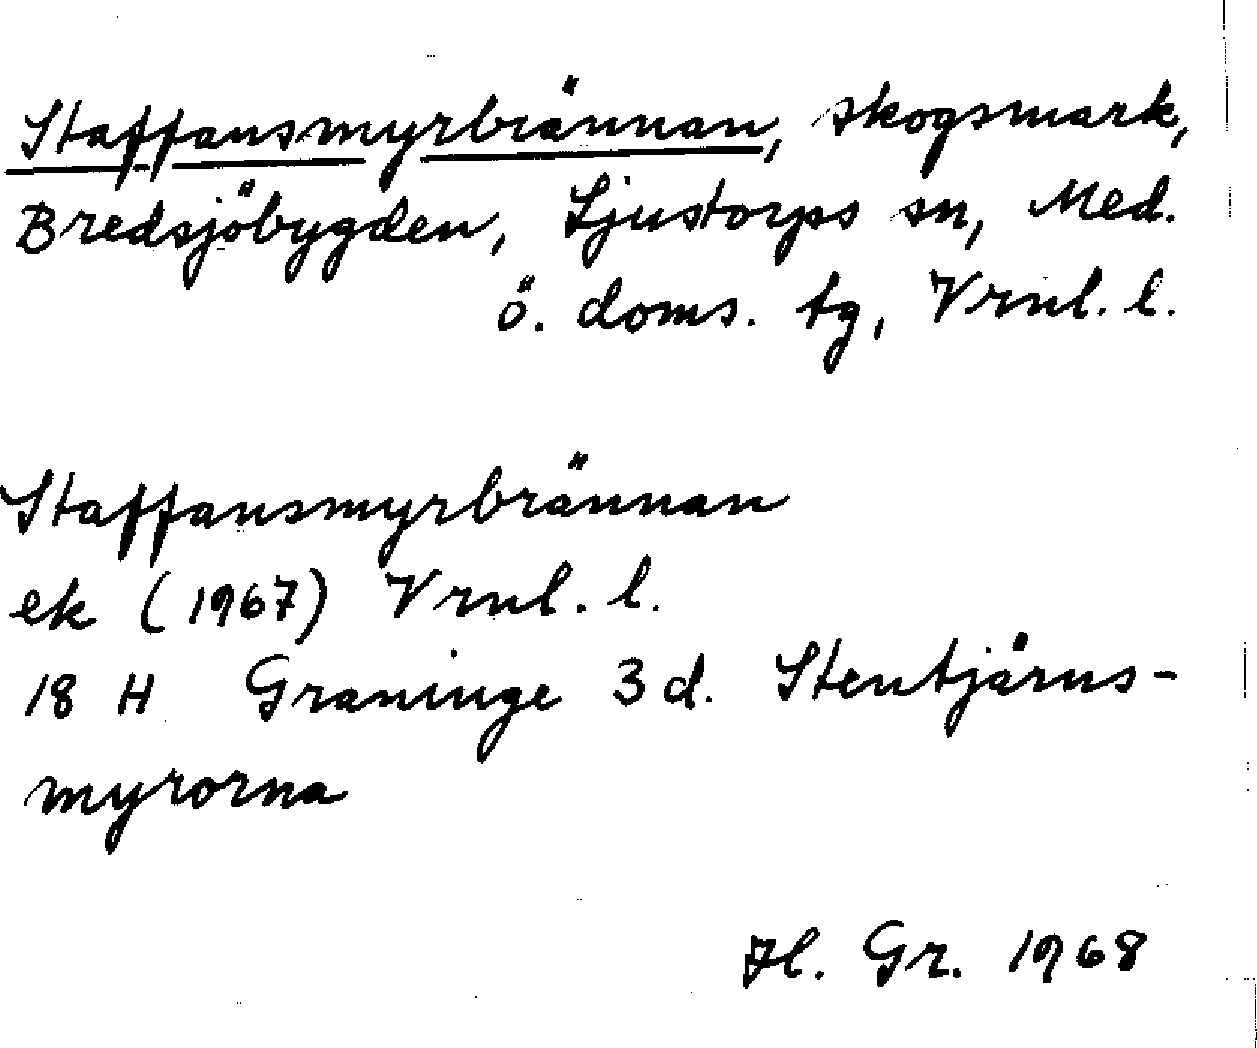 Staffansmyrbrännan, skogsmark,
Bredsjöbygden, Ljustorps sn, Med.
ö. doms. tg, Vrnl. l.
Staffansmyrbrännan
ek (1967) Vrnl. l.
18 H Graninge 3 d. Stentjärns-
myrorna
Hl. Gr. 1968